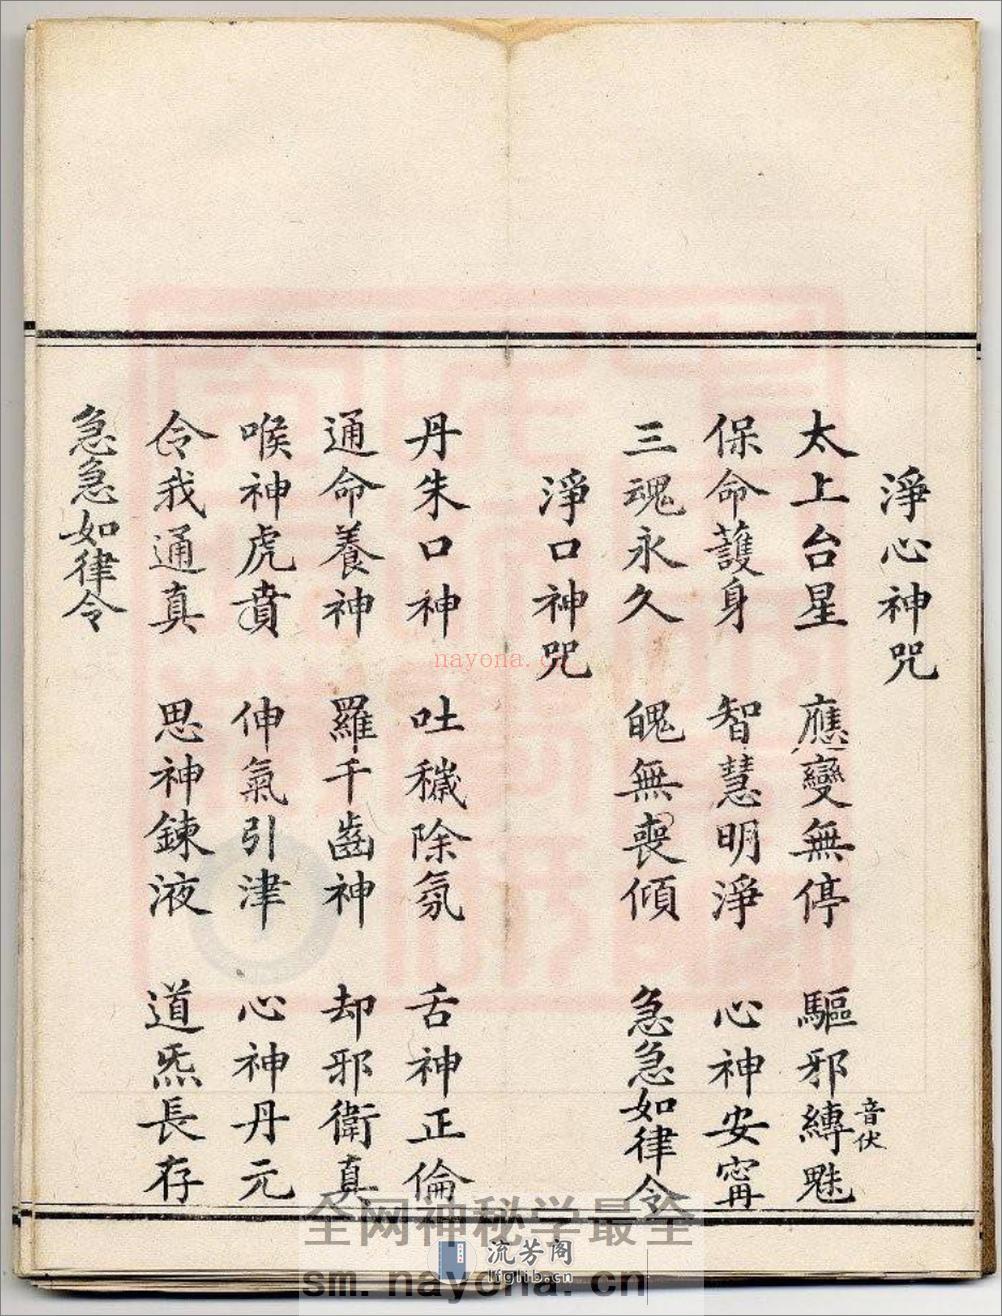 淨心神咒
太上台星 應變無停 驅邪縛魅
音伏
保命護身 智慧明淨 心神安甯
三魂永久 魄無喪傾 急急如律令
淨口神咒
丹朱口神 吐穢除氛 舌神正倫
通命養神 羅千齒神 却邪衛真
喉神虎賁 伸氣引津 心神丹元
令我通真 思神鍊液 道炁長存
急急如律令
nayona.cn
全网神秘学最全
流芳阁
lfglib.cn
sm.nayona.cn